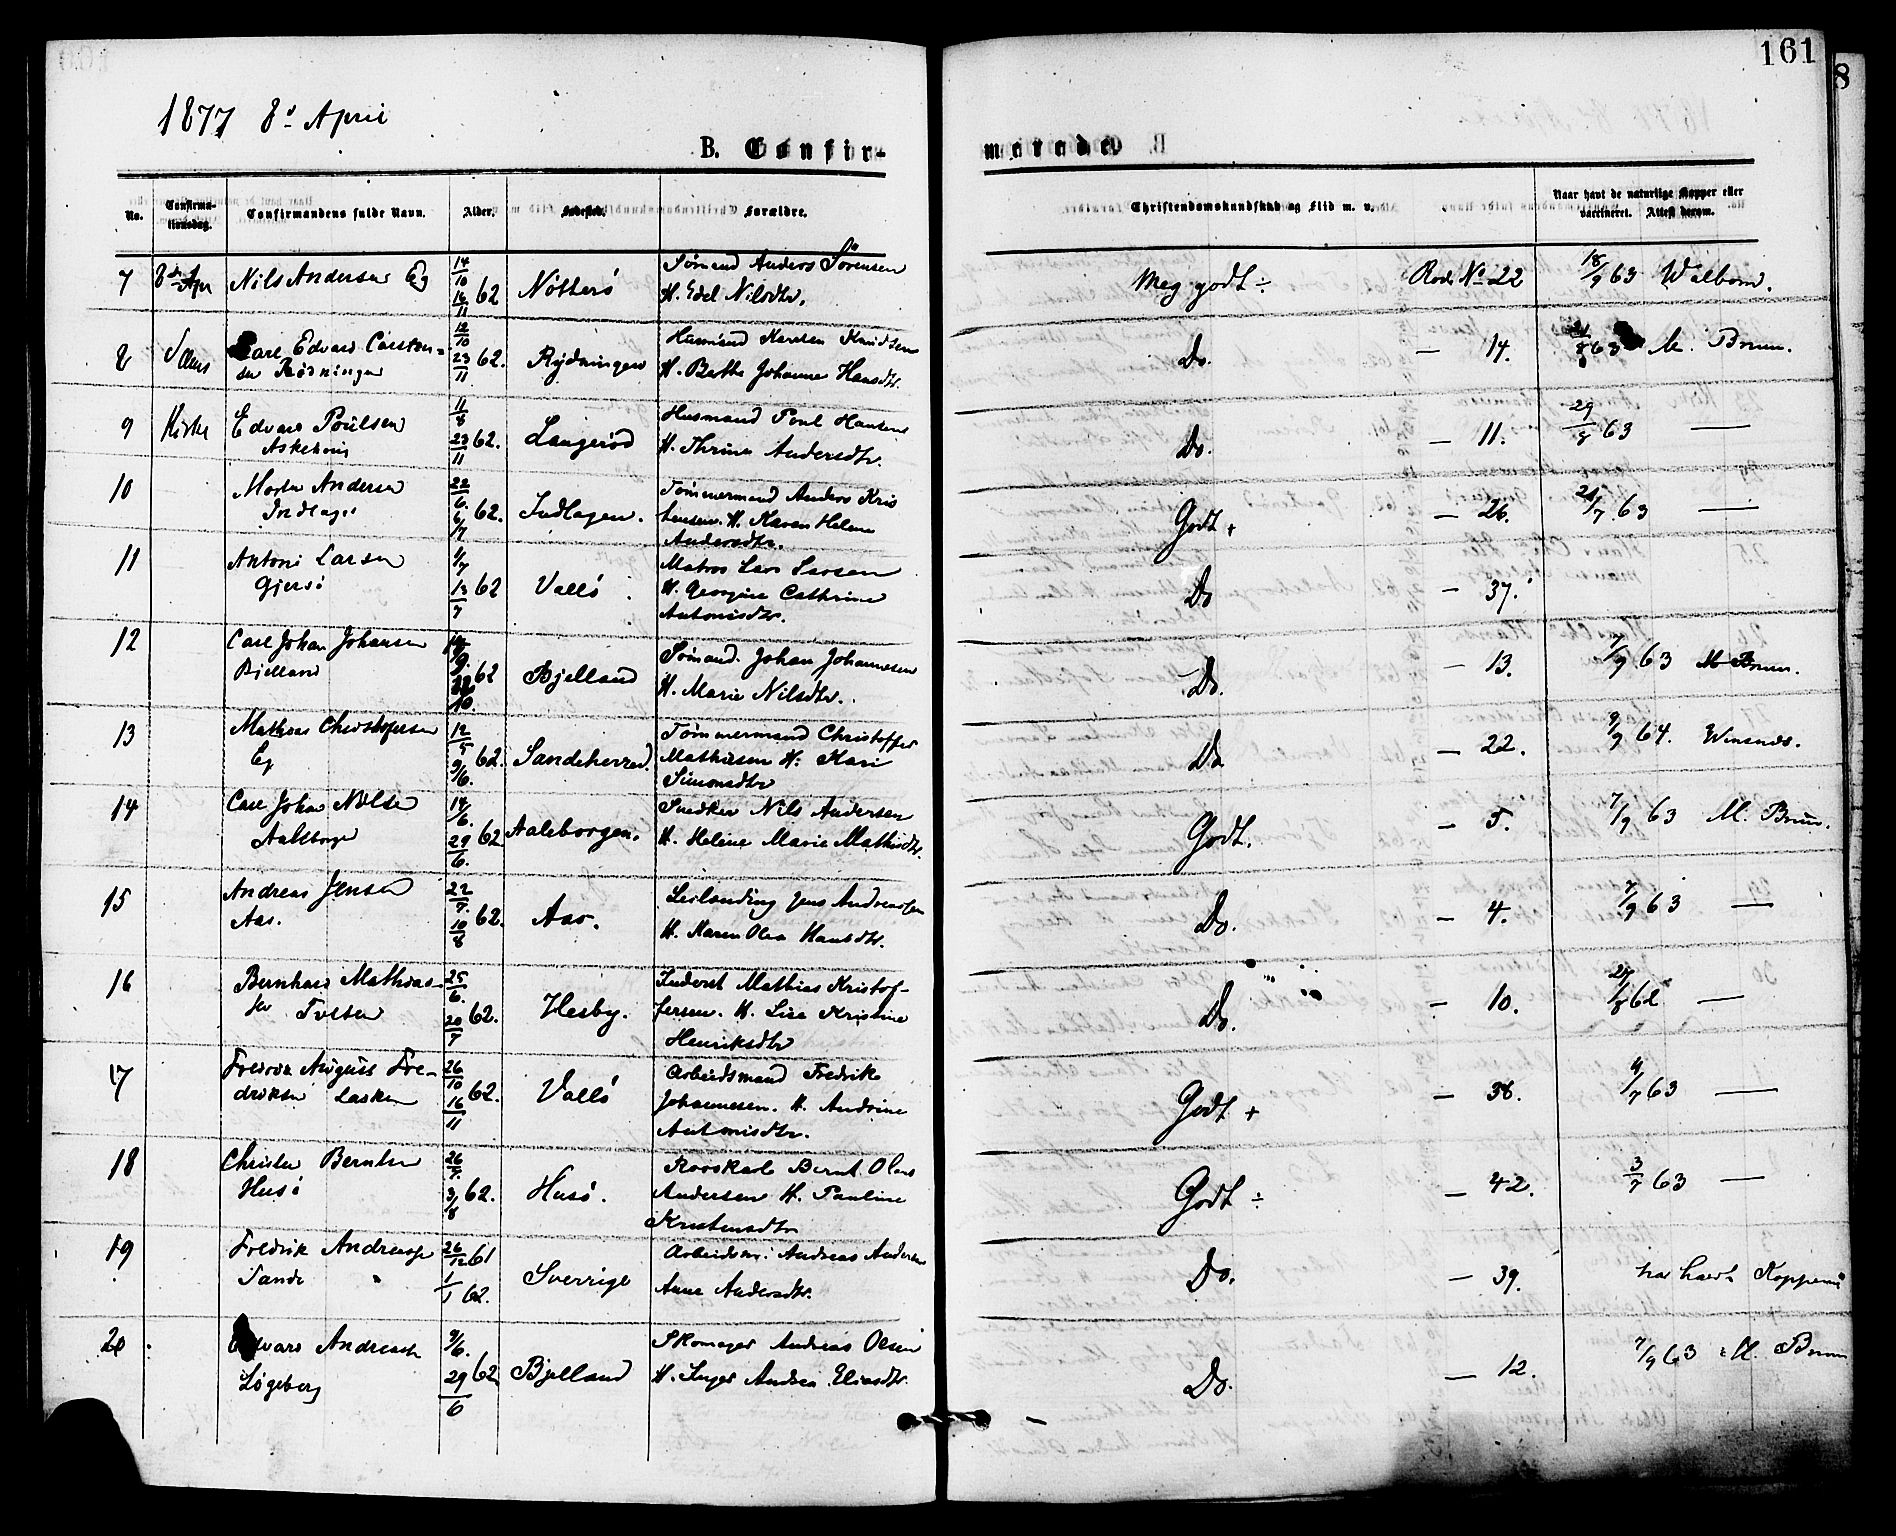 161
8
1877 8de April
B. Confir-
merede
No.
Confirma-
tionsdag.
Confirmandens fulde Navn.
Alder.
Fødested.
Forældre.
Christendomskundskab og Flid m. v.
Naar havt de naturlige Kopper eller
vaccineret. Attest derom.
7 8de Apr Nils Andersen Eg 14/10 16/11 62 Nötterö Sömand Anders Sörensen
H. Edel Nilsdtr. Meg godt ÷ Rode No 22 18/9 63 Wilborn.
8 Sems Carl Edvard Carsten-
sen Rödningen 12/10 23/11 62. Rydningen Husmand Karsten Knudsen
H. Berthe Johanne Hansdtr. Do. — 14. 63 M. Bruun.
9 Kirke Edvard Poulsen
Askehoug 11/8 23/11 62. Langeröd Husmand Poul Hansen
H. Thrine Andersdtr. Do. — 11. 29/8 63 —
10 Morten Andersen
Indlagen 22/6. 6/7 62. Indlagen. Tömmermand Anders Kris
tensen. H. Karen Helene
Andersdtr. Godt + — 26. 7. 63 —
11 Antoni Larsen
Gjersö 4/7 13/7 62 Vallö Matros Lars Larsen
H. Georgine Cathrine
Antonisdtr. Do — 37.
12 Carl Johan Johansen
Bjelland 62 Bjelland Sömand. Johan Johannesen
H. Marie Nilsdtr. Do. — 13. 7/9 63 M Bruun.
13 Mathias Christoffersen
Eg 12/5 9/6. 62. Sandeherred. Tömmermand Christoffer
Mathiesen H. Kari
Simonsdtr Do — 22. 9/9 64.
14 Carl Johan Nilsen
Aaleborgen 14/6. 29/6. 62 Aaleborgen. Snedker Nils Andersen
H. Helene Marie Mathisdtr. Godt. — 5. 7/9 63 M. Bruun.
15 Andreas Jensen
Aas. 22/7. 10/8 62. Aas. Leilænding Jens Andreassen
H. Maren Olea Hansdtr. Do. — 4. 7/9 63 —
16 Bernhard Mathias-
sen Tolsen 25/6. 20/7 62. Hesby. Inderst Mathias Kristof-
fersen. H. Lise Kristine
Henriksdtr Do. — 10. 62 —
17 Fredrik August Fre-
driksen 26/10 16/11 62. Vallö Arbeidsmand Fredrik
Johannesen. H. Andrine
Antonisdtr. Godt + — 38. 7 63 —
18 Christen Berntsen
Husö 26/7. 3/8 62. Husö. Roerskarl Bernt Olaus
Andersen H. Pauline
Kristensdtr Godt ÷ — 42. 3/7 63 —
19 Fredrik Andreassen
Sande 26/12 61 1/1 62. Sverrige Arbeidsm. Andreas Andersen
Anne Andersdtr. Do. — 39. har havt Kopperne
20 Edvard Andreassen
Lögeberg 9/6. 29/6 62 Bjelland Skomager Andreas Olsen
H. Inger Andrea Eliasdtr. Do. — 12. 7/9 63 M. Bruun